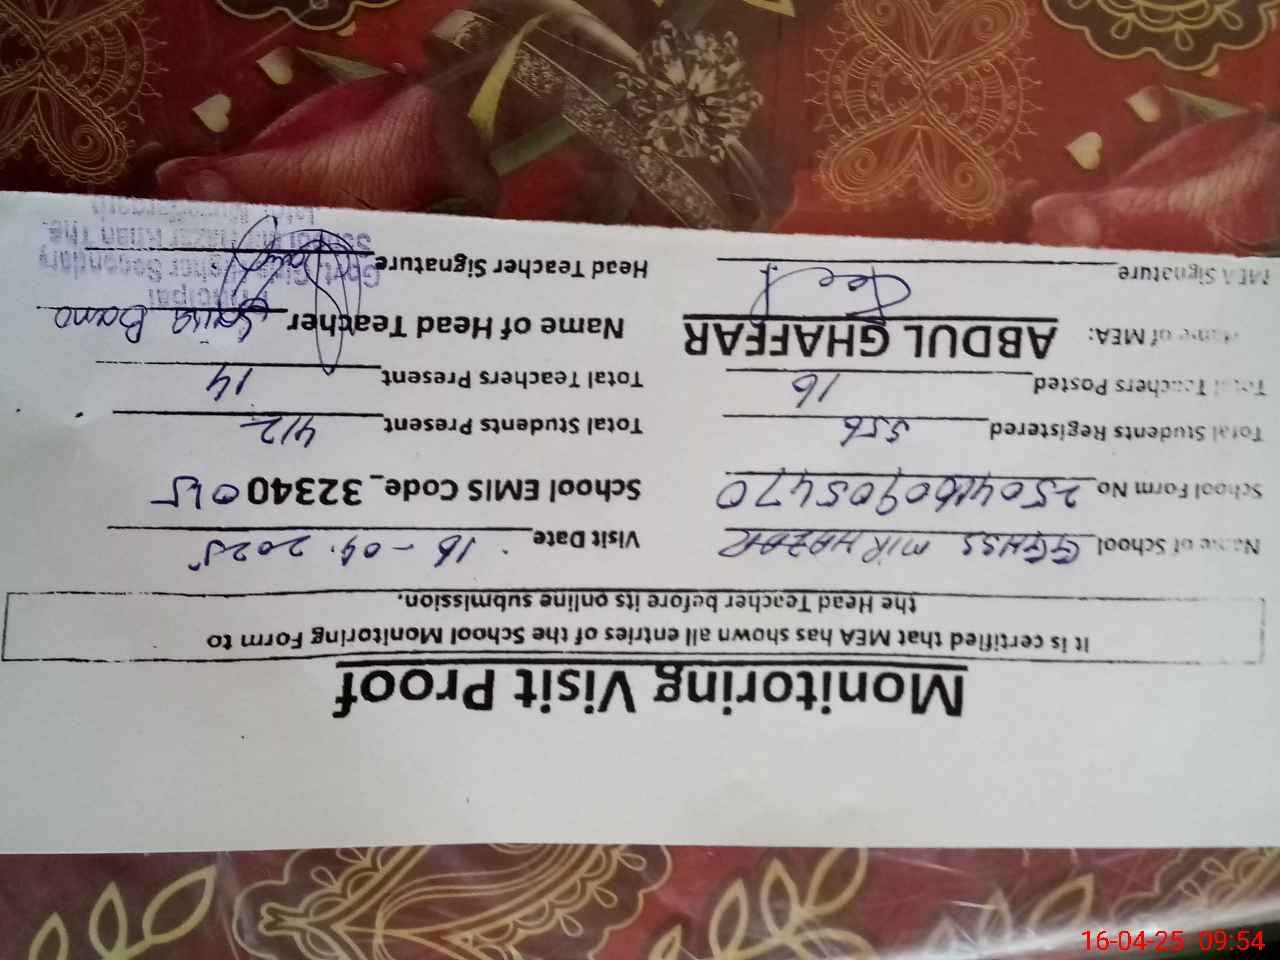 Monitoring Visit Proof
It is certified that MEA has shown all entries of the School Monitoring Form to
the Head Teacher before its online submission.
Name of School GGHSS MIR HAZAR Visit Date 16-04-2025
School Form No 2504160905470 School EMIS Code_32340015
Total Students Registered 556 Total Students Present 412
Total Teachers Posted 16 Total Teachers Present 14
Name of MEA: ABDUL GHAFFAR Name of Head Teacher Bano
MEA Signature Head Teacher Signature
Principal
Govt. Girls Higher Secondary
Hazar Khan The.
16-04-25 09:54